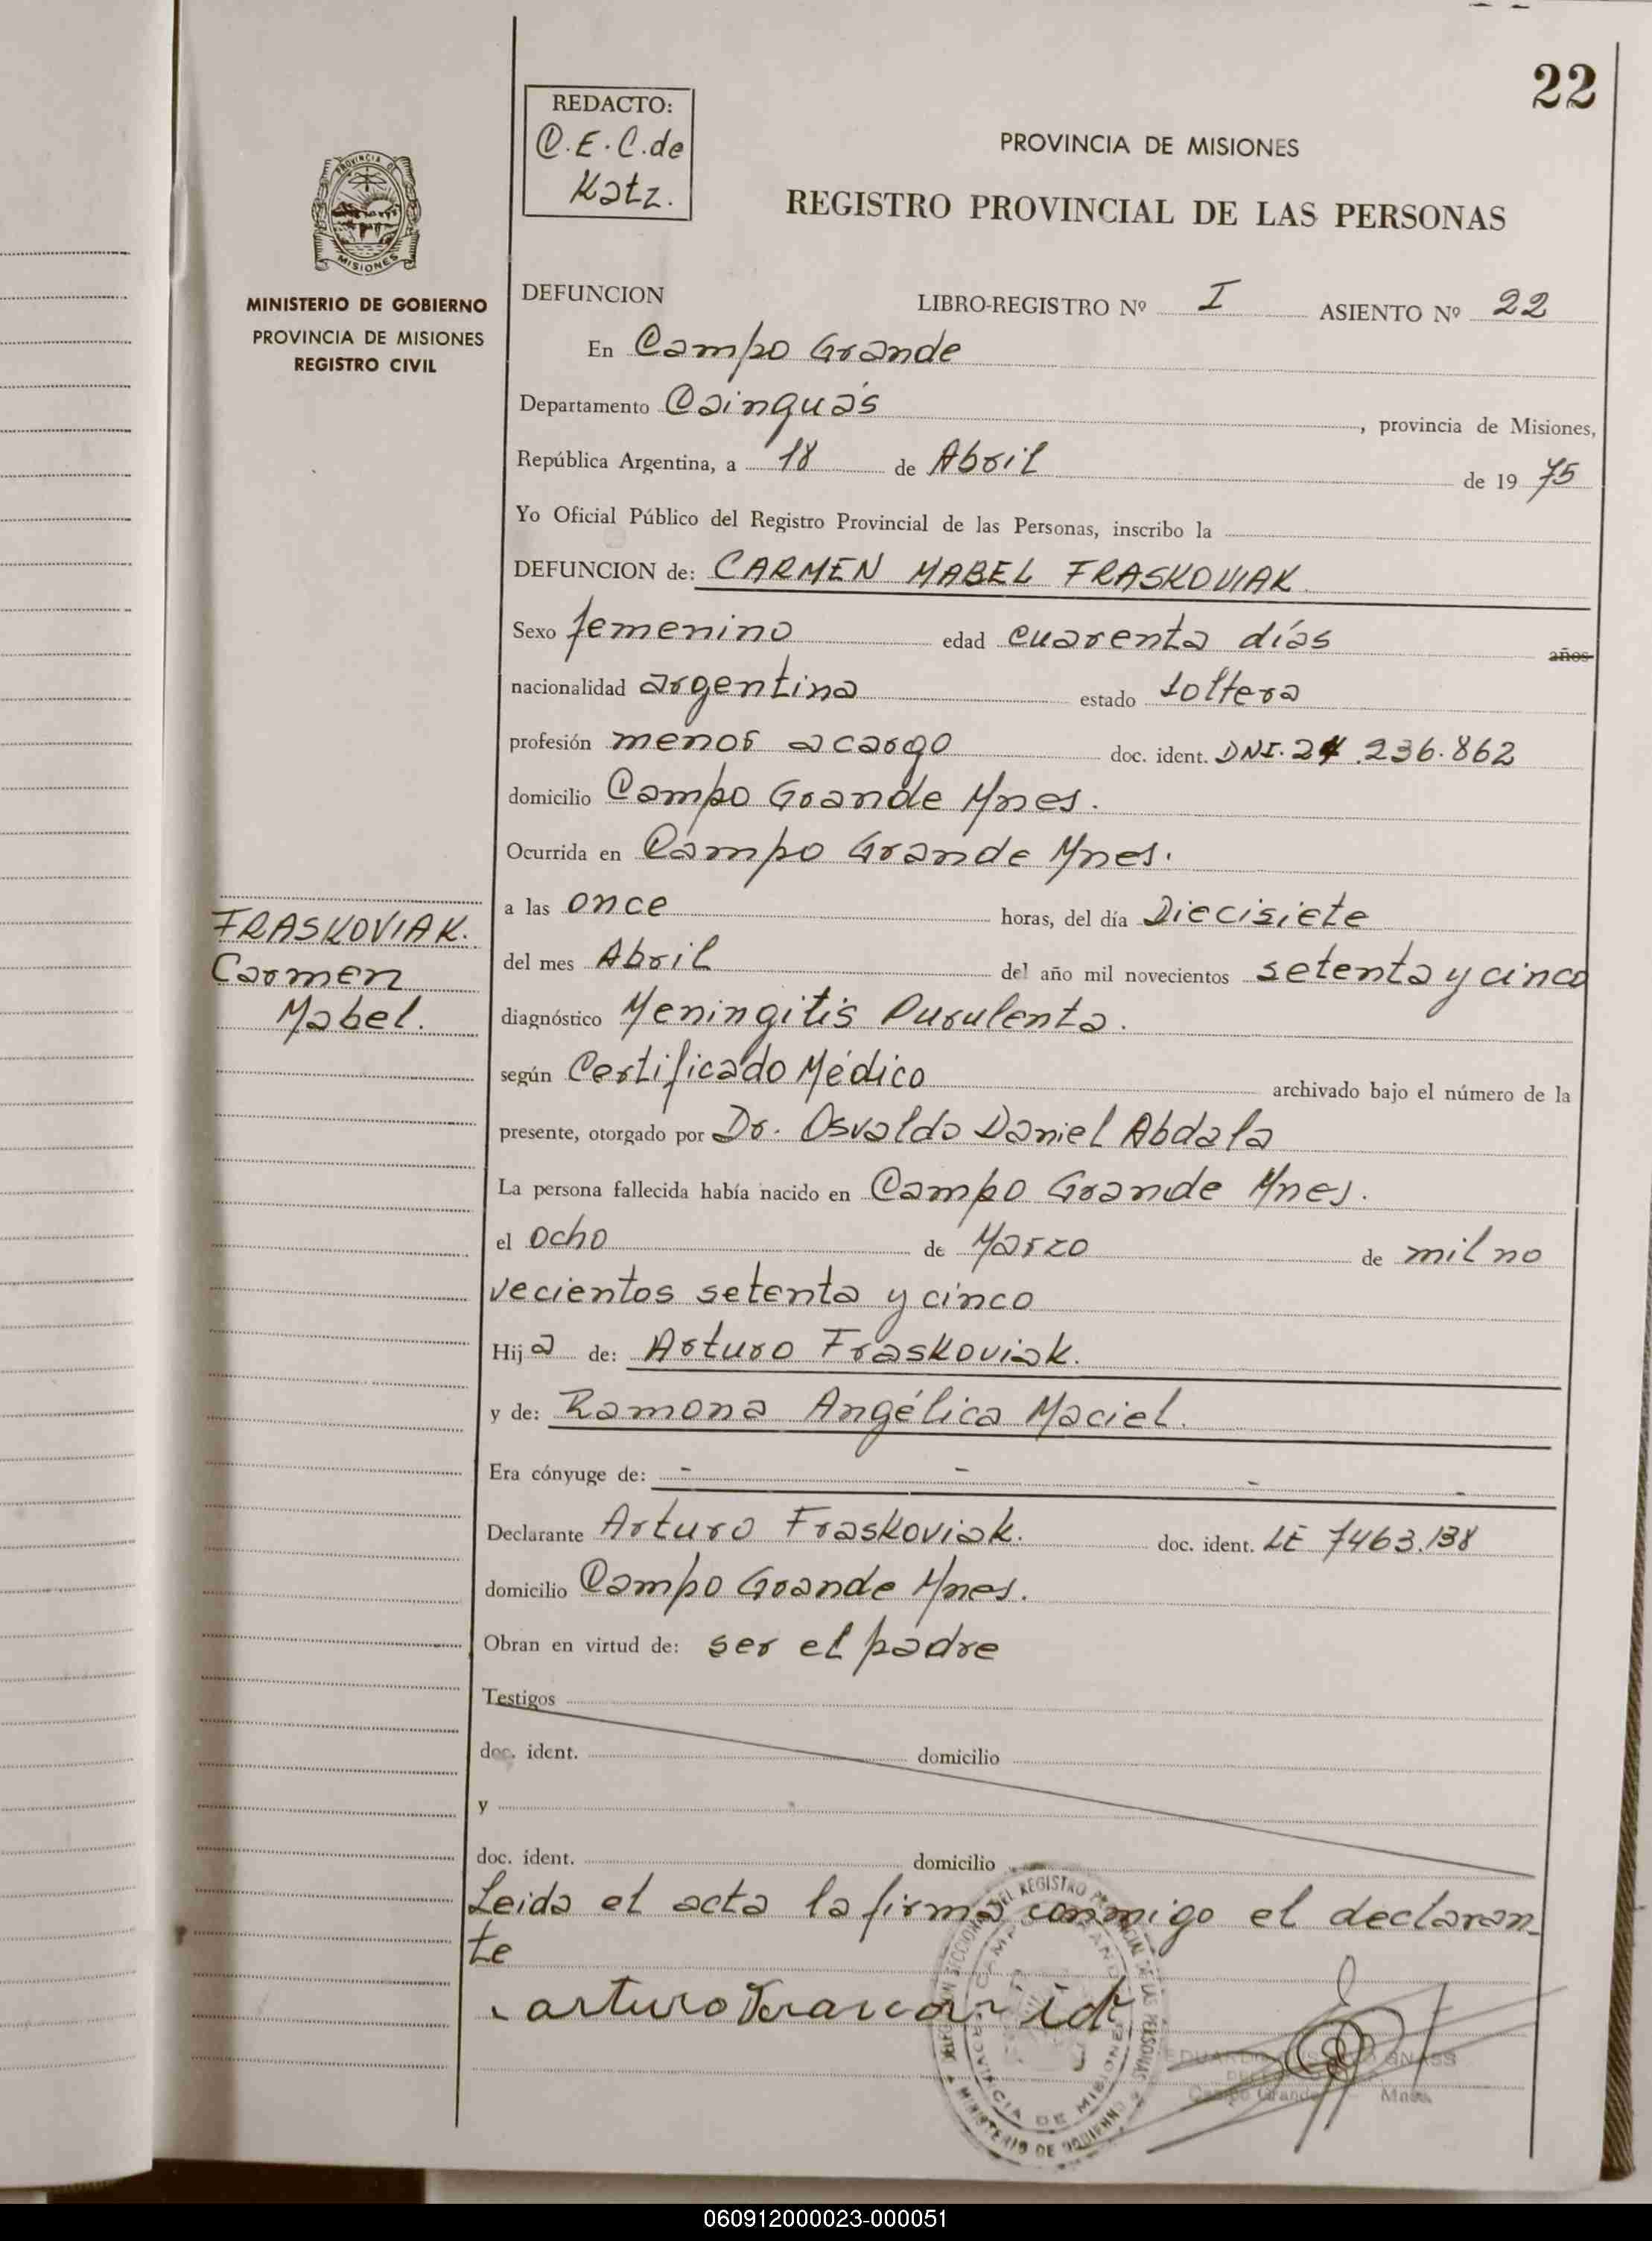 22
REDACTO:
C.E.C.de
Katz.
PROVINCIA DE MISIONES
REGISTRO PROVINCIAL DE LAS PERSONAS
PROVINCIA DE
MISIONES
MINISTERIO DE GOBIERNO
PROVINCIA DE MISIONES
REGISTRO CIVIL
DEFUNCION LIBRO-REGISTRO Nº I ASIENTO Nº 22
En Campo Grande
Departamento Cainguás, provincia de Misiones,
República Argentina, a 18 de Abril de 1975
Yo Oficial Público del Registro Provincial de las Personas, inscribo la
DEFUNCION de: CARMEN MABEL FRASKOVIAK
Sexo femenino edad cuarenta días años
nacionalidad argentina estado soltera
profesión menor a cargo doc. ident. DNI. 24.236.862
domicilio Campo Grande Mnes.
Ocurrida en Campo Grande Mnes.
a las once horas, del día Diecisiete
del mes Abril del año mil novecientos setenta y cinco
diagnóstico Meningitis Purulenta.
según Certificado Médico archivado bajo el número de la
presente, otorgado por Dr. Osvaldo Daniel Abdala
La persona fallecida había nacido en Campo Grande Mnes.
el ocho de Marzo de mil no
vecientos setenta y cinco
Hija de: Arturo Fraskoviak.
y de: Ramona Angélica Maciel.
Era cónyuge de: - - - -
Declarante Arturo Fraskoviak. doc. ident. LE 7463.138
domicilio Campo Grande Mnes.
Obran en virtud de: ser el padre
Testigos
doc. ident. domicilio
y
doc. ident. domicilio
Leida el acta la firma conmigo el declaran_
te
arturo
FRASKOVIAK.
Carmen
Mabel.
REGISTRO PROVINCIAL DE LAS PERSONAS
PROVINCIA DE MISIONES
MINISTERIO DE GOBIERNO
EDUARDO GNASS
Campo Grande Mnes.
060912000023-000051